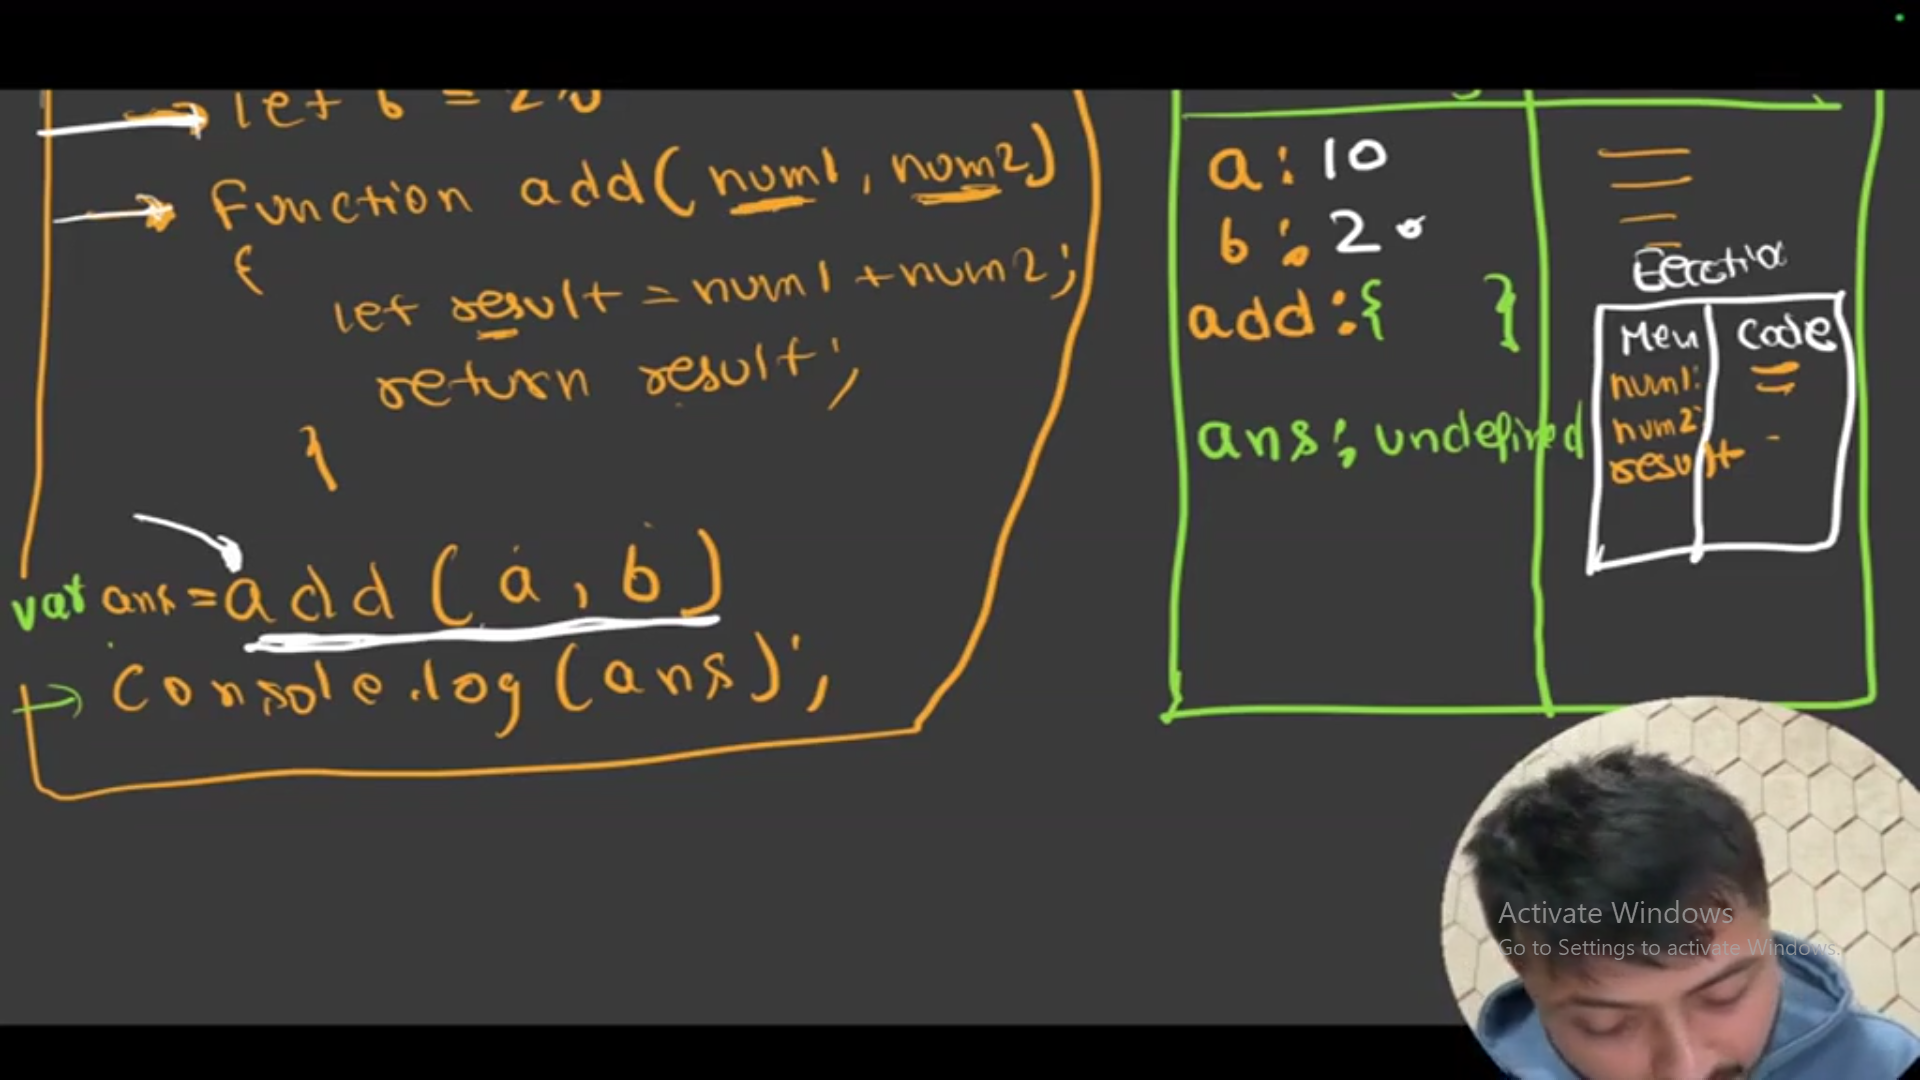 let b = 20
function add(num1, num2)
{
let result = num1 + num2;
return result;
}
var ans = add(a, b)
console.log(ans);
a: 10
b: 20
add: { }
ans: undefined
Mem Code
num1:
num2:
result
Activate Windows
Go to Settings to activate Windows.